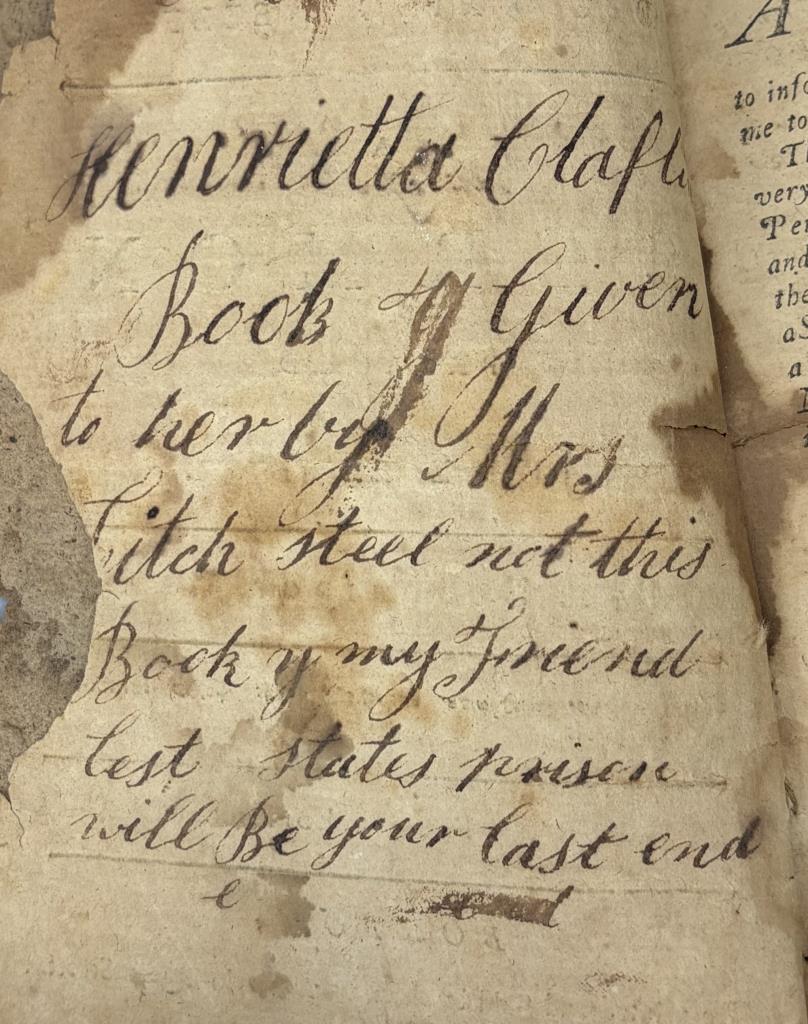 Henrietta Clafl
Book Given
to her by Mrs
itch steel not this
Book y my Friend
lest states prison
will Be your last end
e
A
to info
me to
Th
very
Per
and
the
aS
a